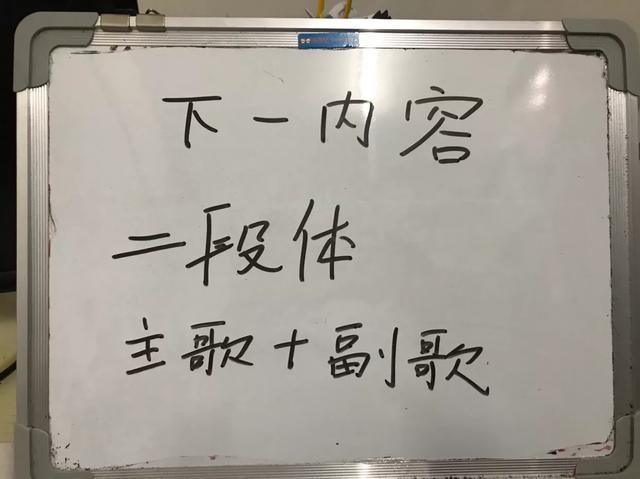 下一内容
二段体
主歌+副歌